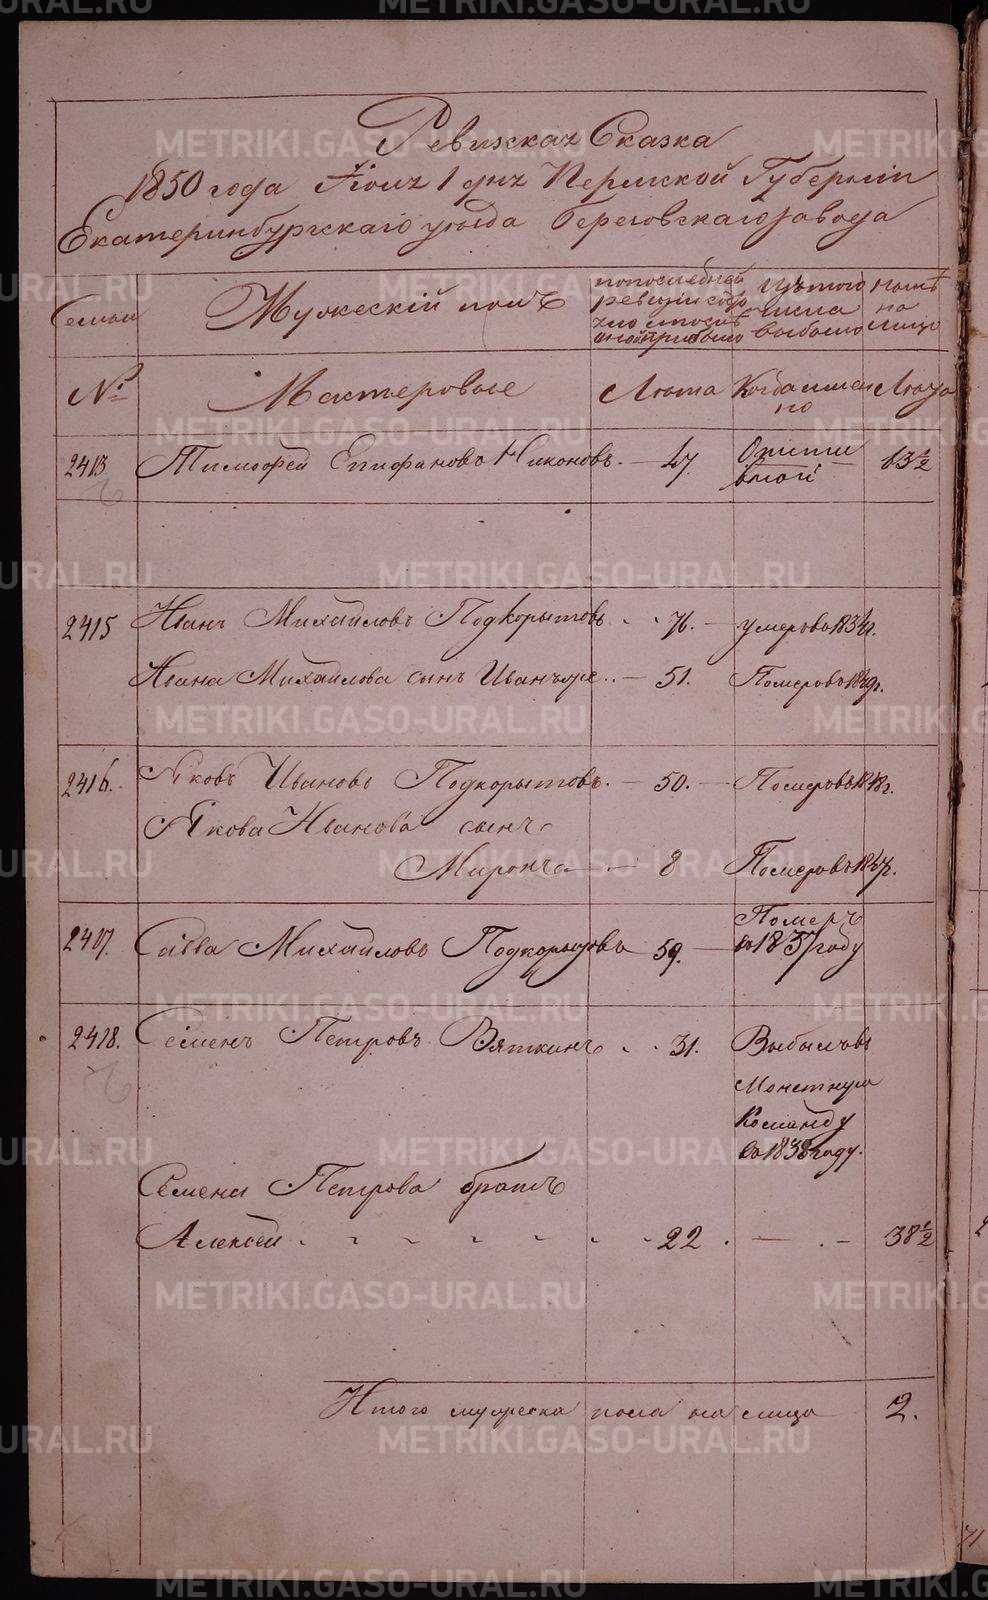 Ревизская Сказка
1850 года Iюля 1 дня Пермской Губернiи
Екатеринбургскаго уезда Березовскаго завода
Семьи
Мужескiй полъ
по последней
ревизiи состо
яло и после
оной прибыло
Изъ того
числа
выбыло
Ныне
на
лицо
№
Мастеровые
Лета
Когда имен
но
Лета
2413
Тимофей Епифановъ Никоновъ. — 47.
13½
2415
Иванъ Михайловъ Подкорытовъ . . 76. — умеръ во 1834 г.
Ивана Михайлова сынъ Иванъ же .. — 51. Померъ въ 1849 г.
2416.
Яковъ Ивановъ Подкорытовъ. — 50. — Померъ въ 1848 г.
Якова Иванова сынъ
Миронъ — 8 Померъ въ 1847 г.
2417.
Савва Михайловъ Подкорытовъ 59. —
Померъ
во 1837 году
2418.
Семенъ Петровъ Вяткинъ . . 31. Выбылъ въ
Монетную
Команду
во 1838 году.
Семена Петрова братъ
Алексей . . . 22 . — . — 38½
Итого мужеска пола на лицо 2.
METRIKI.GASO-URAL.RU